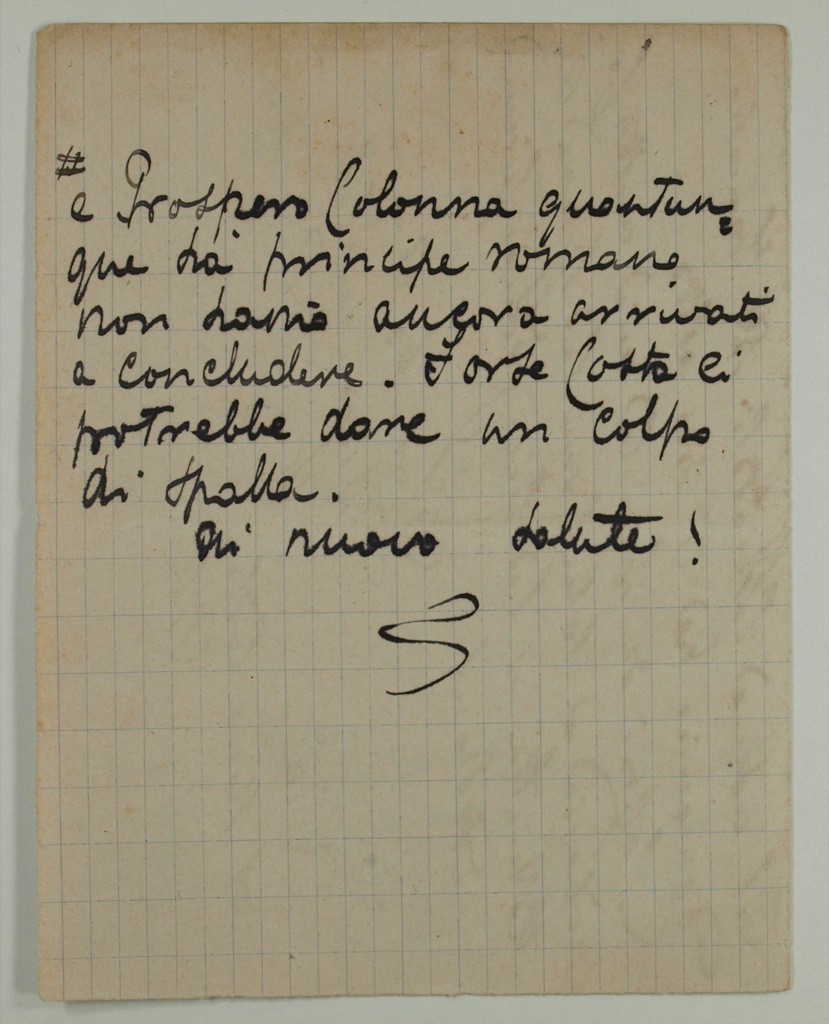 #
e Prospero Colonna quantun=
que sia principe romano
non siamo ancora arrivati
a concludere. Forse Costa ci
potrebbe dare un colpo
di spalla.
Di nuovo salute!